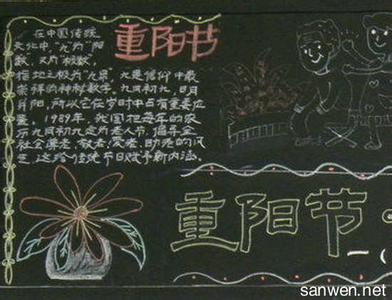 在中国传统
文化中,"九"为"阳
数,又为"极数,
指地之极为"九泉,九是信仰中最
崇拜的神秘数字,九月初九,日月
并阳,所以它在岁时中占有重要位
置,1989年,我国把每年的农
历九月初九定为老人节,倡导全
社会尊老、敬老、爱老、助老的风
气,这给传统节日赋予新内涵。
重阳节
重阳节
一(
sanwen.net